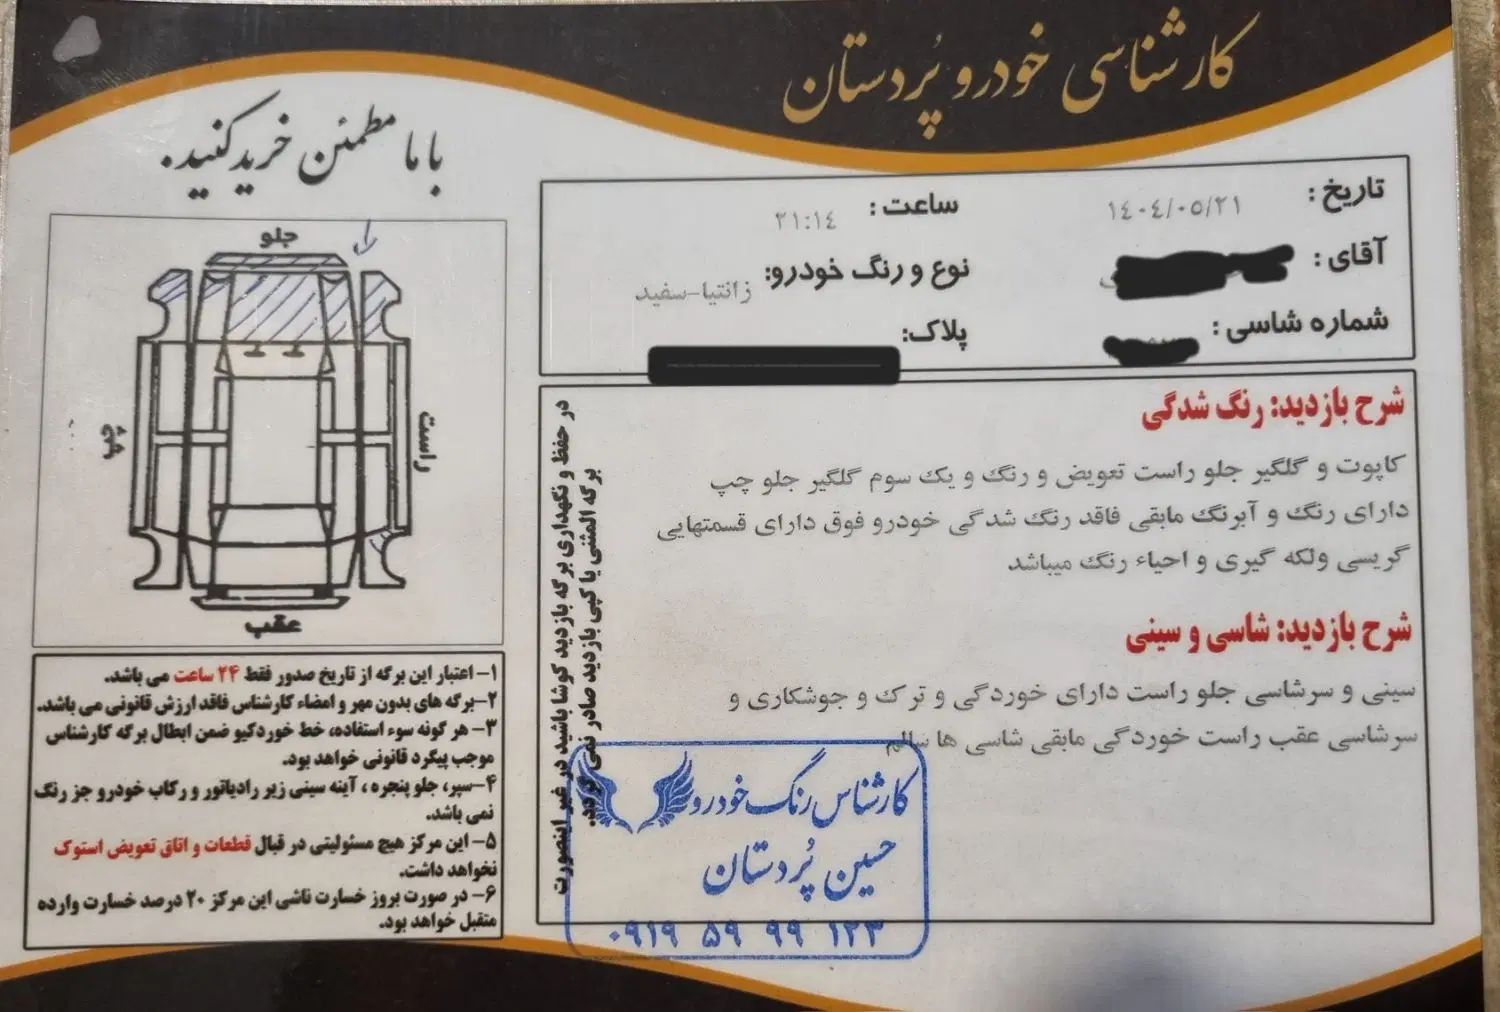 کارشناسی خودرو پُردستان
با ما مطمئن خرید کنید.
تاریخ : ۱۴۰۴/۰۵/۲۱
ساعت : ۲۱:۱۴
آقای :
نوع و رنگ خودرو: زانتیا-سفید
شماره شاسی :
پلاک:
شرح بازدید: رنگ شدگی
کاپوت و گلگیر جلو راست تعویض و رنگ و یک سوم گلگیر جلو چپ
دارای رنگ و آبرنگ مابقی فاقد رنگ شدگی خودرو فوق دارای قسمتهایی
گریسی ولکه گیری و احیاء رنگ میباشد
شرح بازدید: شاسی و سینی
سینی و سرشاسی جلو راست دارای خوردگی و ترک و جوشکاری و
سرشاسی عقب راست خوردگی مابقی شاسی ها سالم
در حفظ و نگهداری برگه بازدید کوشا باشید در غیر اینصورت
برگه المثنی یا کپی بازدید صادر نمی گردد.
کارشناس رنگ خودرو
حسین پُردستان
۰۹۱۹ ۵۹ ۹۹ ۱۲۳
جلو
چپ
راست
عقب
۱- اعتبار این برگه از تاریخ صدور فقط ۲۴ ساعت می باشد.
۲-برگه های بدون مهر و امضاء کارشناس فاقد ارزش قانونی می باشد.
۳- هر گونه سوء استفاده، خط خوردکیو ضمن ابطال برگه کارشناس
موجب پیگرد قانونی خواهد بود.
۴-سپر، جلو پنجره ، آینه سینی زیر رادیاتور و رکاب خودرو جز رنگ
نمی باشد.
۵- این مرکز هیچ مسئولیتی در قبال قطعات و اتاق تعویض استوک
نخواهد داشت.
۶- در صورت بروز خسارت ناشی این مرکز ۲۰ درصد خسارت وارده
متقبل خواهد بود.